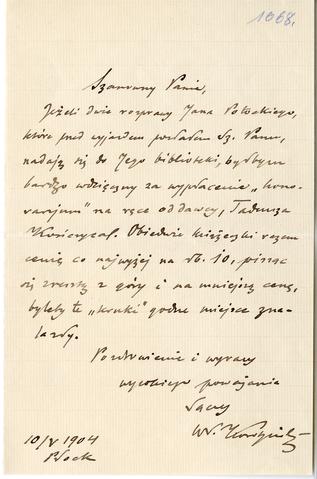 1068.
Szanowny Panie,
Jeżeli dwie rozprawy Jana Potockiego,
które przed wyjazdem posłałem Sz. Panu,
nadają się do Jego biblioteki, byłbym
bardzo wdzięczny za wypłacenie „hono-
rarjum" na ręce oddawcy, Tadeusza
Obiedwie książeczki razem
cenię co najwyżej na rb. 10, pisząc
się zresztą z góry i na mniejszą cenę,
byleby te „kruki" godne miejsce zna-
lazły.
Pozdrowienie i wyrazy
wysokiego poważania
łączy
Wł.
10/V 1904
Płock